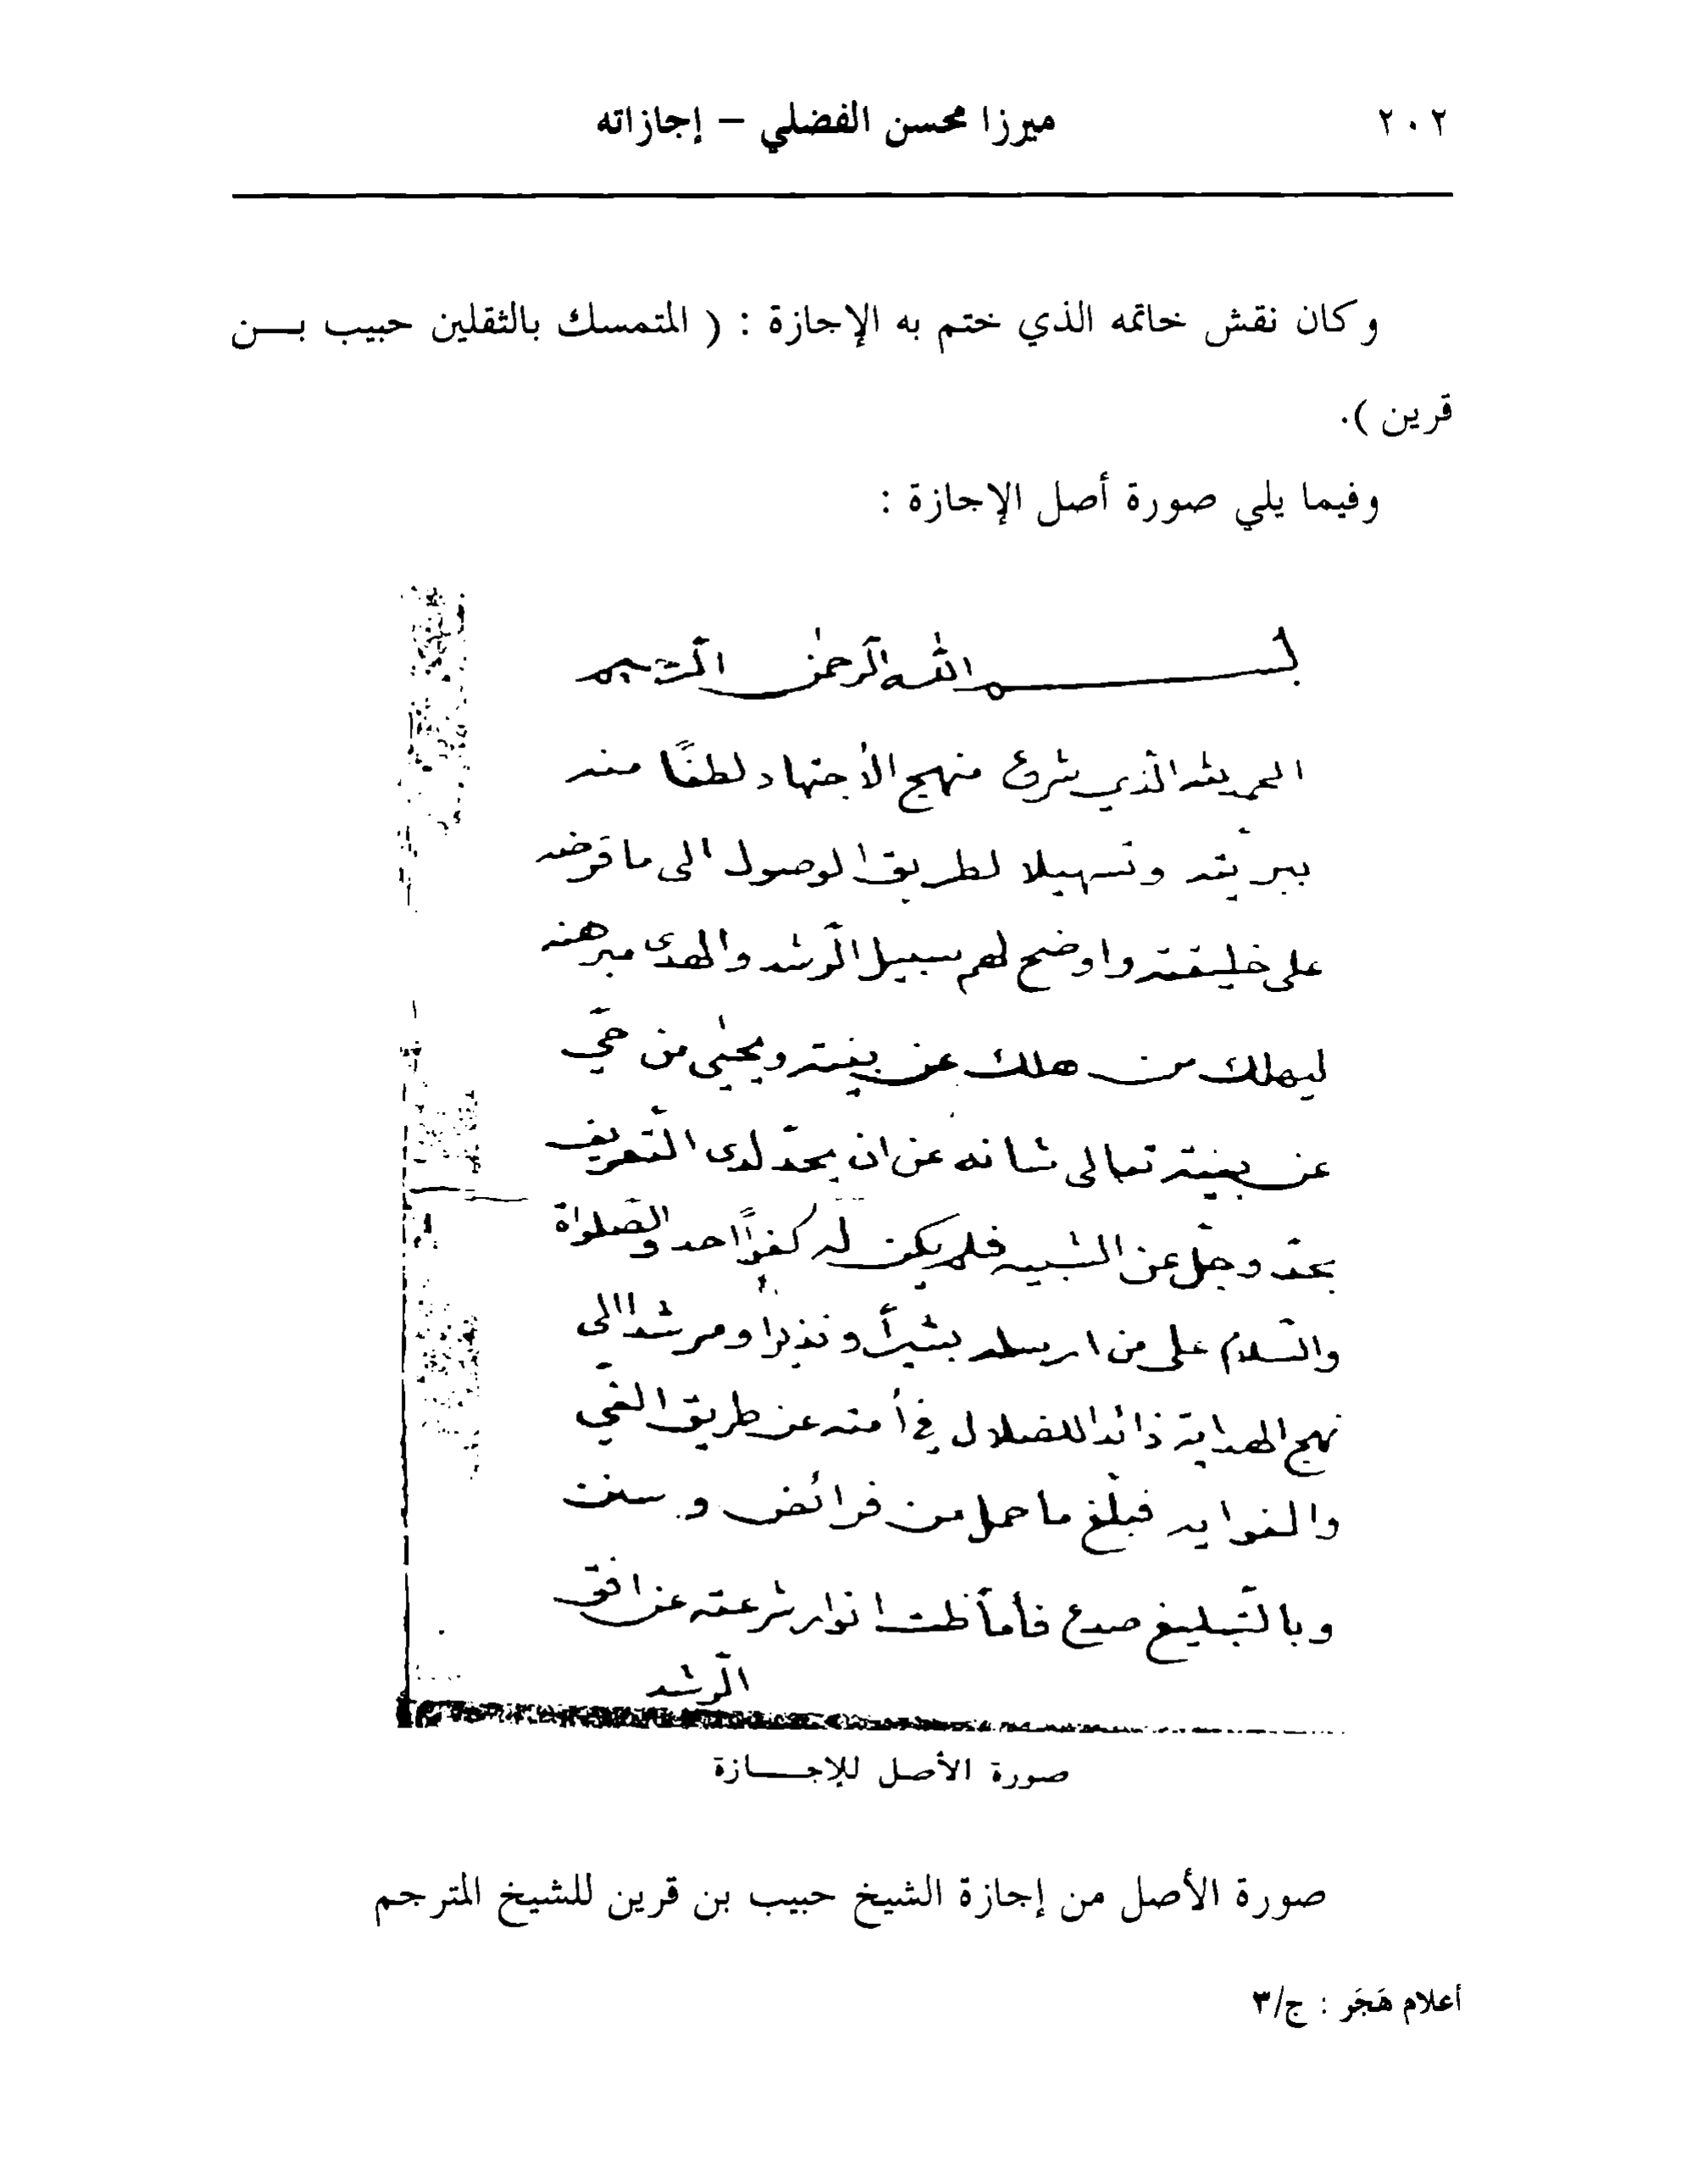 ٢٠٢
ميرزا محسن الفضلي – إجازاته
وكان نقش خاتمه الذي ختم به الإجازة : ( المتمسك بالثقلين حبيب بـــن
قرين ).
وفيما يلي صورة أصل الإجازة :
بسم الله الرحمن الرحيم
الحمد لله الذي شرع منهج الأجتهاد لطفًا منه
ببريّته وتسهيلا لطريق الوصول الى ما فرضه
على خليقته واوضح لهم سبيل الرّشد والهدى مبرهنه
ليهلك من هلك عن بينته ويحيٰى من حيّ
عن بينته تعالى شانه عن ان يحدّ لدى التّعريف
بحدّ وجلّ عن الشبيه فلم يكن له كفوًا احد والصّلواة
والسّلام على من ارسله بشيرًا ونذيرا ومرشدا الى
نهج الهداية ذائدا للضلال في أمته عن طريق الغي
والغوايه فبلّغ ما حمل من فرائض و سنن
وبالتّبليغ صدع فأماطت انوار شرعته عن افق
الرّشد
صورة الأصل للإجـــازة
صورة الأصل من إجازة الشيخ حبيب بن قرين للشيخ المترجم
أعلام هَجَر : ج/٣